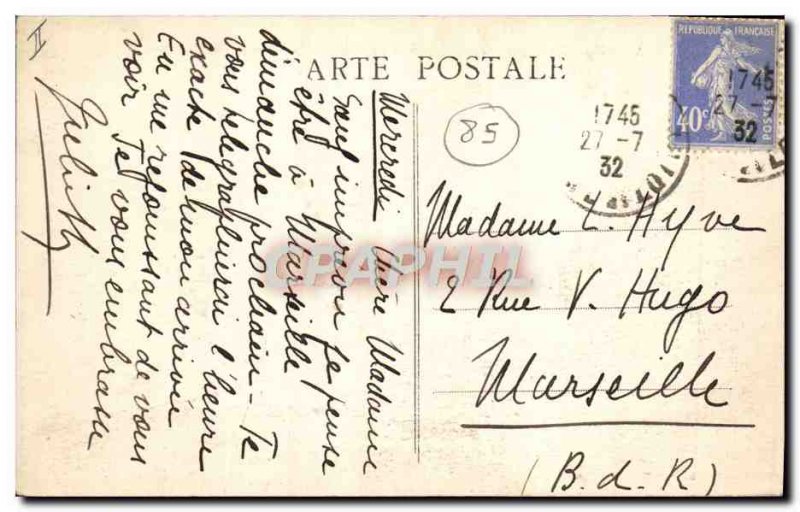 II
CARTE POSTALE
REPUBLIQUE FRANÇAISE
40c
POSTES
1745
27 -7
32
1745
27 -7
32
85
Mercredi Chère Madame
Sauf imprévu je pense
être à Marseille
dimanche prochain - Je
vous télégraphierai l'heure
exacte de mon arrivée
En me réjouissant de vous
voir Je vous embrasse
Madame L. Hyve
2 Rue V. Hugo
Marseille
(B. d. R)
CPAPHIL